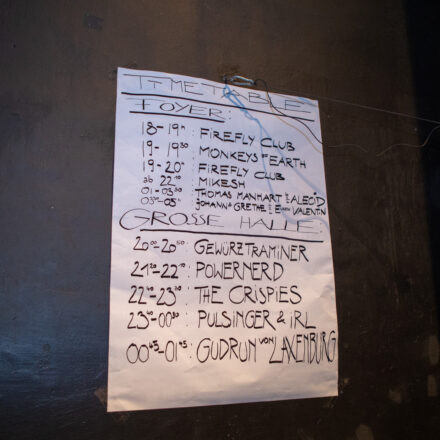 TIMETABLE
FOYER:
18-19h : FIREFLY CLUB
19-1930 : MONKEYS OF EARTH
19-20h : FIREFLY CLUB
ab 22:10 : MIKESH
01-03:30 : THOMAS MANHART & ALEOID
03:30-05h : JOHANN & GRETHE & VALENTIN
GROSSE HALLE:
20:00-20:50 : GEWÜRZTRAMINER
21:20-22:10 : POWERNERD
22:40-23:20 : THE CRISPIES
23:40-00:30 : PULSINGER & IRL
00:45-01:45 : GUDRUN VON LAXENBURG